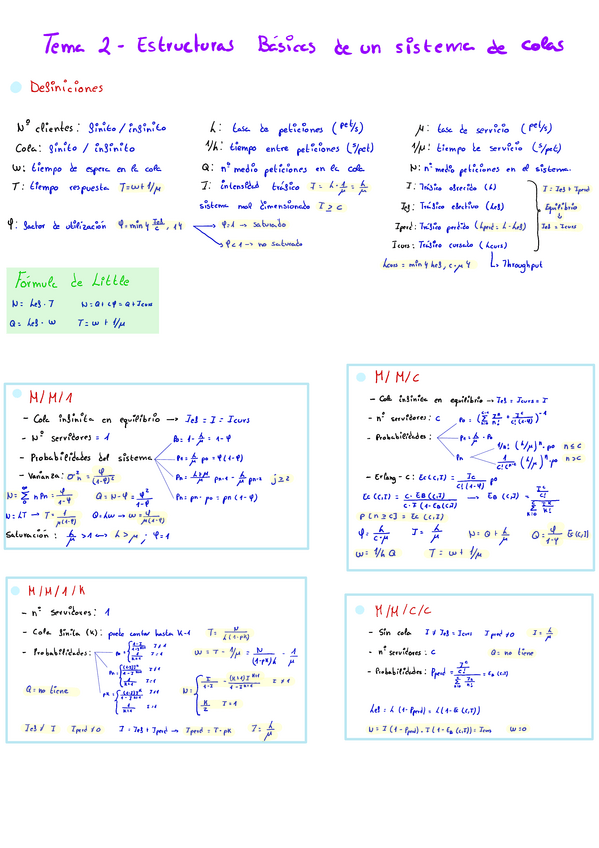 Tema 2 - Estructuras Básicas de un sistema de colas
Definiciones
Nº clientes: finito / infinito
Cola: finito / infinito
W: tiempo de espera en la cola
T: tiempo respuesta T=W+1/μ
λ: tasa de peticiones (pet/s)
1/λ: tiempo entre peticiones (s/pet)
Q: nº medio peticiones en la cola
I: intensidad tráfico I = λ · 1/μ = λ/μ
sistema mal dimensionado I ≥ c
μ: tasa de servicio (pet/s)
1/μ: tiempo de servicio (s/pet)
N: nº medio peticiones en el sistema.
I: Tráfico ofrecido (λ)
Ief: Tráfico efectivo (λef)
Iperd: Tráfico perdido (λperd = λ - λef)
Icurs: Tráfico cursado (λcurs)
I = Ief + Iperd
Equilibrio
Ief = Icurs
λcurs = min { λef, c·μ }
Throughput
φ: factor de utilización φ = min { Ief/c, 1 }
φ=1 → saturado
φ<1 → no saturado
Fórmula de Little
N = λef · T N = Q + cφ = Q + Icurs
Q = λef · W T = W + 1/μ
M/M/1
- Cola infinita en equilibrio → Ief = I = Icurs
- Nº servidores = 1
- Probabilidades del sistema
P0 = 1 - λ/μ = 1-φ
P1 = λ/μ P0 = φ(1-φ)
Pn = (λ+μ)/μ Pn-1 - λ/μ Pn-2 j ≥ 2
Pn = φn · P0 = φn (1-φ)
- Varianza: σ²n = φ/(1-φ)²
N = Σ nPn = φ/(1-φ) Q = N - φ = φ²/(1-φ)
N = λT → T = 1/μ(1-φ) Q = λW → W = φ/μ(1-φ)
Saturación: λ/μ > 1 ↔ λ > μ ; φ=1
M/M/C
- Cola infinita en equilibrio → Ief = Icurs = I
- nº servidores: C
- Probabilidades:
P1 = λ/μ · P0
Pn
n ≤ c
n > c
- Erlang - C: Ec(C,I) = Ic/C!(1-φ) P0
Ec(C,I) = C · EB(C,I) / C - I (1 - EB(C,I))
P[n ≥ c] = Ec(C,I)
φ = λ/c·μ I = λ/μ N = Q + λ/μ Q = φ/(1-φ) Ec(C,I)
W = 1/λ Q T = W + 1/μ
M/M/1/K
- nº servidores: 1
- Cola finita (K): puede contar hasta K-1 T = N/λ(1-PK)
- Probabilidades:
W = T - 1/μ = N/(1-PK)λ - 1/μ
Q = no tiene
Ief ≠ I Iperd ≠ 0 I = Ief + Iperd → Iperd = I · PK I = λ/μ
M/M/C/C
- Sin cola I ≠ Ief = Icurs Iperd ≠ 0 I = λ/μ
- nº servidores: C Q = no tiene
- Probabilidades: Pperd = = EB(C,I)
λef = λ (1 - Pperd) = λ (1 - EB(C,I))
N = I (1 - Pperd) = I (1 - EB(C,I)) = Icurs W = 0